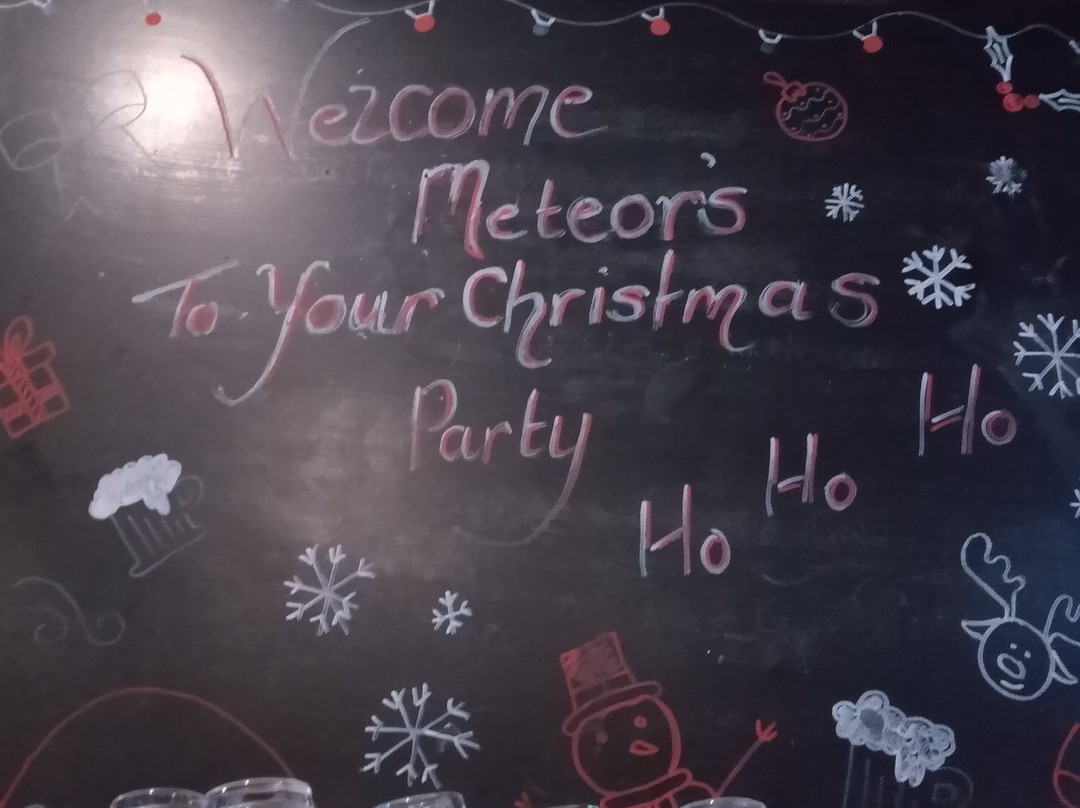 Welcome
Meteor's
To Your Christmas
Party
Ho
Ho
Ho